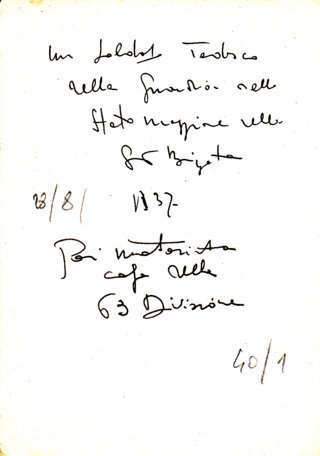 un soldato Tedesco
nella Guardia nello
Stato maggiore nella
Brigata
28/8/ 1937
Poi motorista
capo nella
63 Divisione
40/1